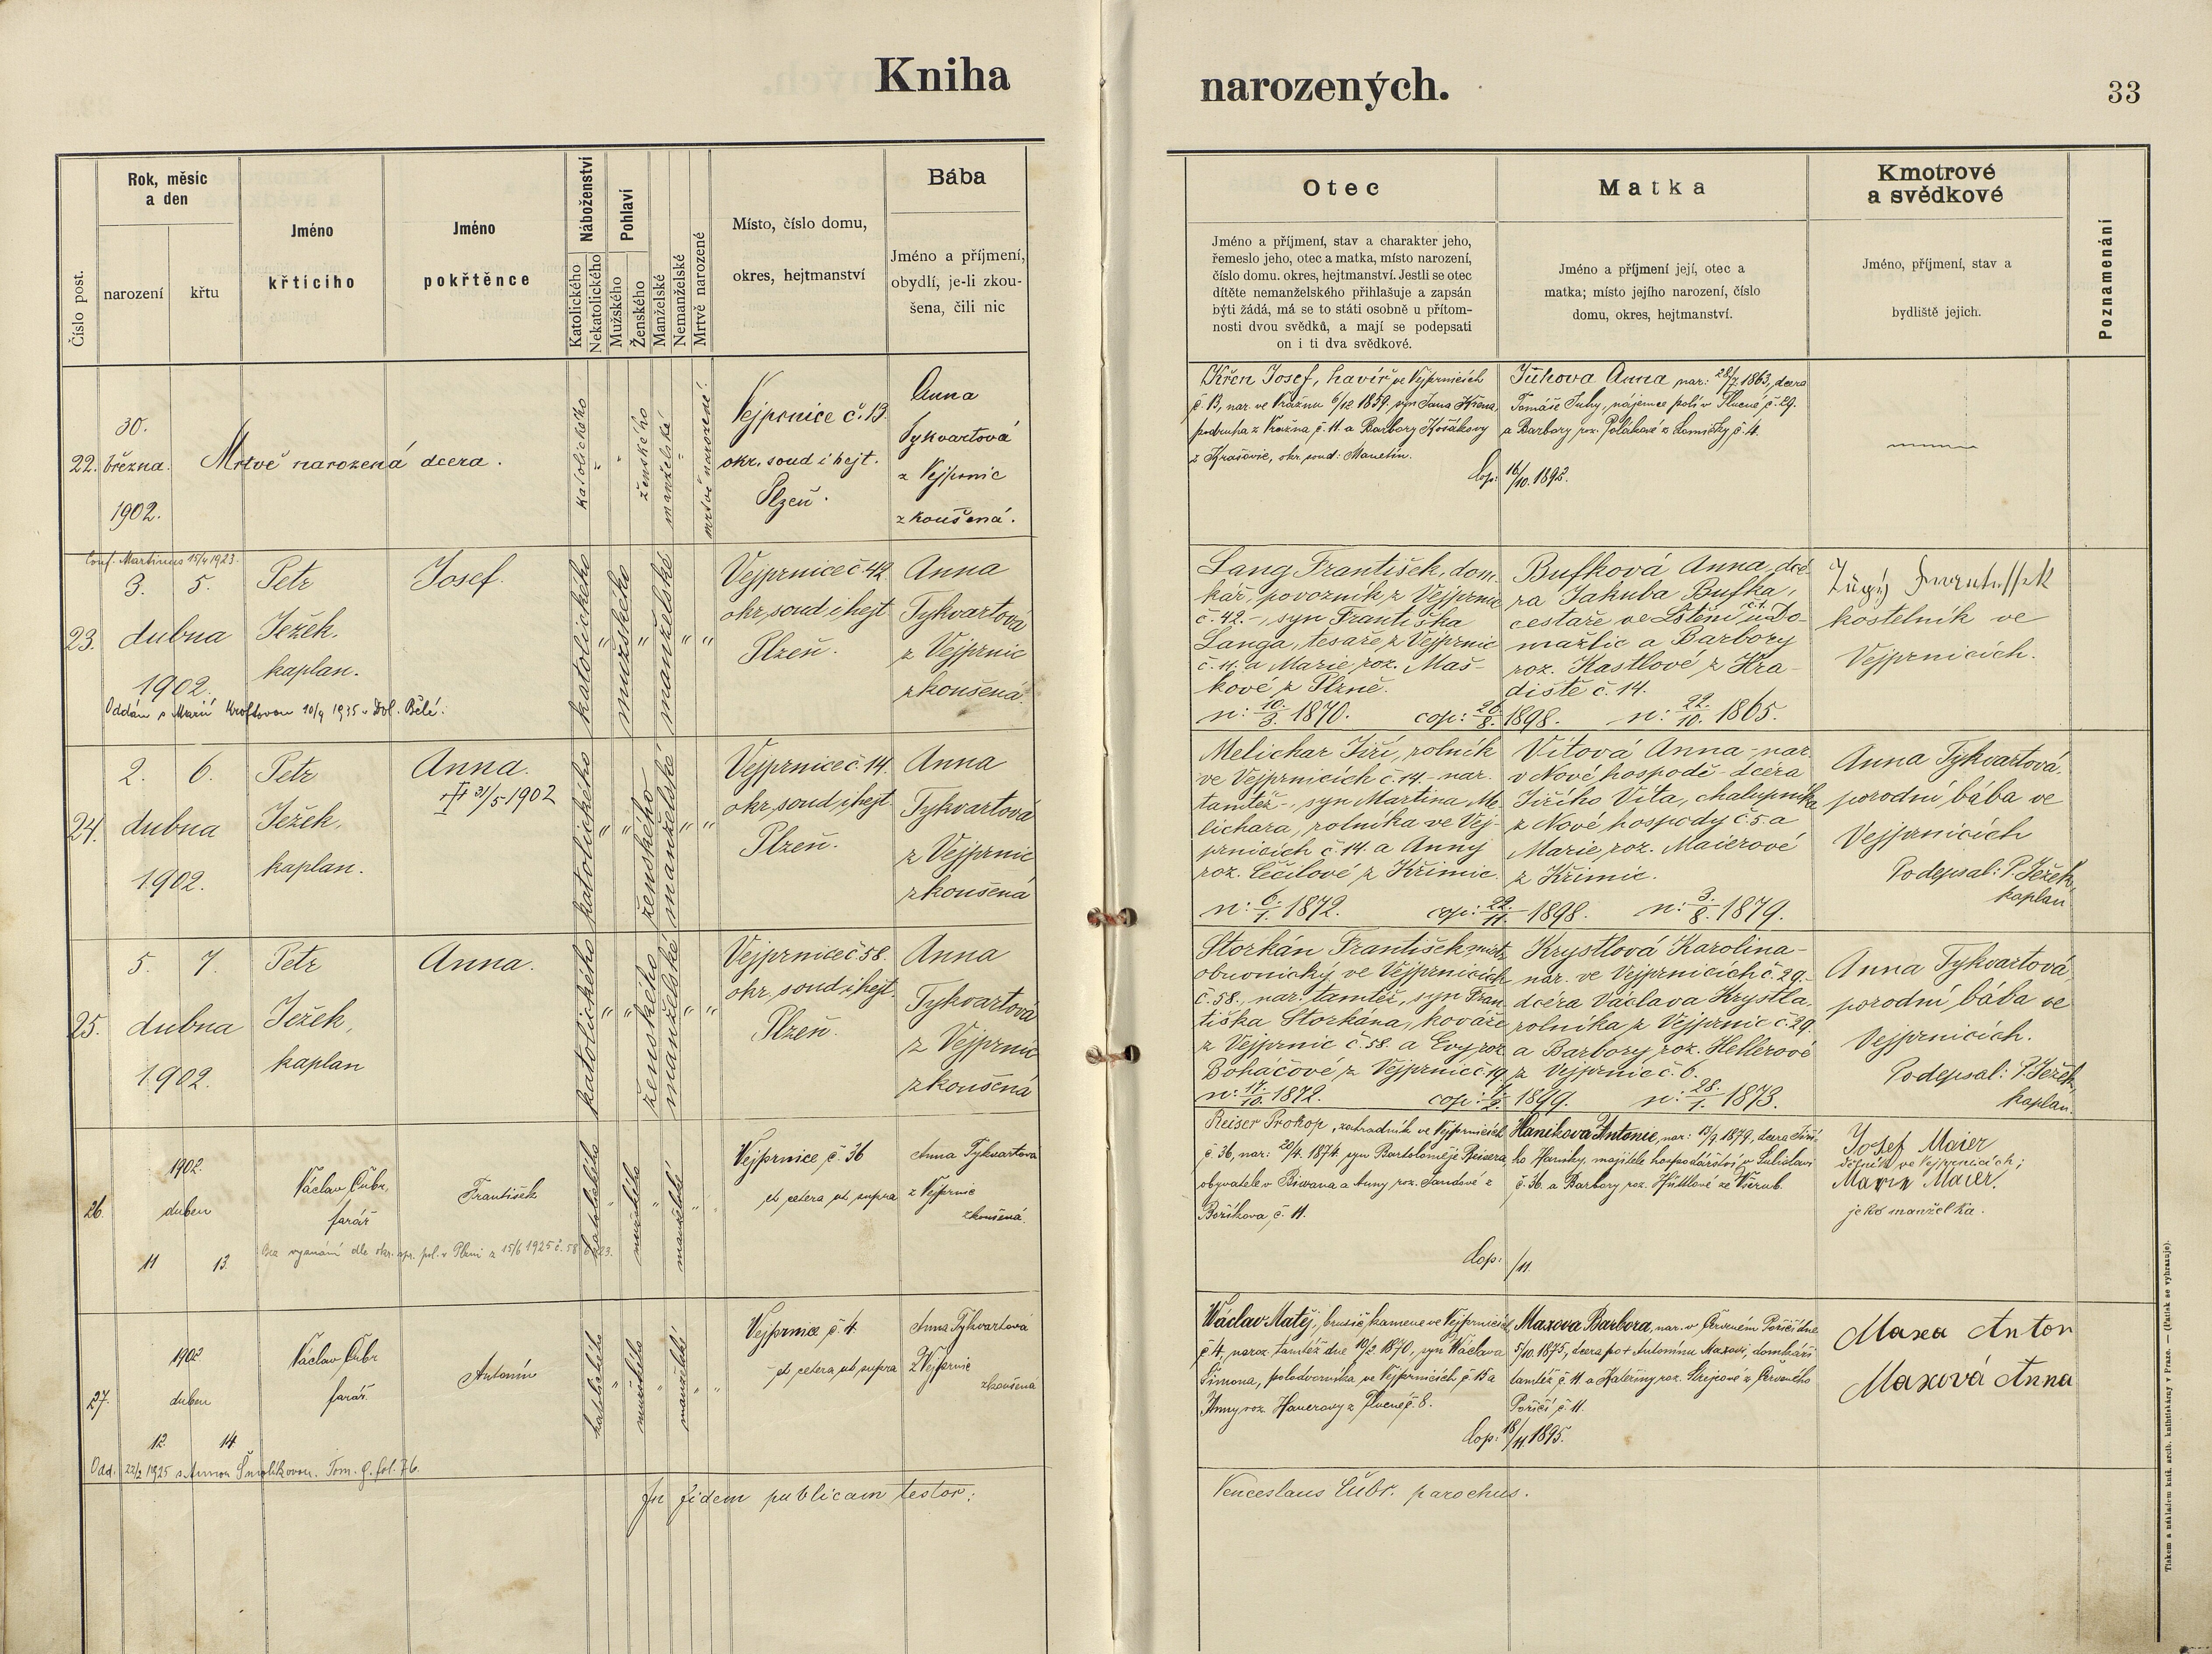 Kniha
narozených.
33
Číslo post.
Rok, měsíc
a den
narození
křtu
Jméno
křtícího
Jméno
pokřtěnce
Náboženství
Katolického
Nekatolického
Pohlaví
Mužského
Ženského
Manželské
Nemanželské
Mrtvě narozené
Místo, číslo domu,
okres, hejtmanství
Bába
Jméno a příjmení,
obydlí, je-li zkou-
šena, čili nic
Otec
Jméno a příjmení, stav a charakter jeho,
řemeslo jeho, otec a matka, místo narození,
číslo domu. okres, hejtmanství. Jestli se otec
dítěte nemanželského přihlašuje a zapsán
býti žádá, má se to státi osobně u přítom-
nosti dvou svědků, a mají se podepsati
on i ti dva svědkové.
Matka
Jméno a příjmení její, otec a
matka; místo jejího narození, číslo
domu, okres, hejtmanství.
Kmotrové
a svědkové
Jméno, příjmení, stav a
bydliště jejich.
Poznamenání
22.
30.
března.
1902.
Mrtvě narozená dcera.
katolického
"
"
ženského
manželské
"
mrtvě narozené.
Vejprnice č. 13.
okr. soud i hejt.
Plzeň.
Anna
Tykvartová
z Vejprnic
zkoušená.
Křen Josef, havíř ve Vejprnicích
č. 13, nar. ve Vražnu 6/12 1859. syn Jana Křena,
podruha z Vražna č. 11. a Barbory Kosákovy
z Krašovic, okr. soud: Manetín.
Cop: 16/10. 1892.
Juhova Anna nar: 28/7 1863, dcera
Tomáše Juhy, nájemce polí v Tlucné č. 29.
a Barbory roz. Polákové z Lomničky č. 4.
Conf. Martinus 15/4 1923.
23.
3. 5.
dubna
1902.
Petr
Ježek.
kaplan.
Josef.
katolického
"
mužského
"
manželské
" "
Vejprnice č. 42.
okr. soud i hejt
Plzeň.
Anna
Tykvartová
z Vejprnic
zkoušená.
Oddán s Marií Kroftovou 10/9 1935 v Dol. Bělé.
Lang František, dom.
kář, povozník z Vejprnic
č. 42. -, syn Františka
Langa, tesaře z Vejprnic
č. 11. a Marie roz. Maš-
kové z Plzně.
n: 10./3. 1870. cop: 20./8. 1898. n: 22./10. 1865.
Bufková Anna, dce
ra Jakuba Bufka,
cestáře ve Lštění č. 1. u Do
mažlic a Barbory
roz. Kastlové z Hra-
diště č. 14.
František
kostelník ve
Vejprnicích.
24.
2. 6.
dubna
1902.
Petr
Ježek,
kaplan.
Anna.
31/5 1902
katolického
" "
ženského
manželské
" "
Vejprnice č. 14.
okr. soud i hejt
Plzeň.
Anna
Tykvartová
z Vejprnic
zkoušená
Melichar Jiří, rolník
ve Vejprnicích č. 14 - nar.
tamtéž -, syn Martina Me
lichara, rolníka ve Vej-
prnicích č. 14 a Anny
roz. Čečilové z Křimic.
n: 6./1. 1872. cop: 22./11. 1898. n: 3./8. 1879.
Vítová Anna - nar.
v Nové hospodě - dcera
Jiřího Víta, chalupníka
z Nové hospody č. 5. a
Marie roz. Maierové
z Křimic.
Anna Tykvartová,
porodní bába ve
Vejprnicích
Podepsal: P. Ježek,
kaplan
25.
5. 7.
dubna
1902.
Petr
Ježek,
kaplan
Anna.
katolického
" "
ženského
manželské
" "
Vejprnice č. 58.
okr. soud i hejt.
Plzeň.
Anna
Tykvartová
z Vejprnic
zkoušená
Storkán František mistr
obuvnický ve Vejprnicích
č. 58., nar. tamtéž, syn Fran
tiška Storkána, kováře
z Vejprnic č. 58. a Evy roz.
Boháčové z Vejprnic č. 19.
n: 17./10. 1872. cop: 1899. n: 28./1. 1873.
Krystlová Karolina -
nar. ve Vejprnicích č. 29. -
dcera Václava Krystla,
rolníka z Vejprnic č. 29.
a Barbory roz. Hellerové
z Vejprnic č. 6.
Anna Tykvartová,
porodní bába ve
Vejprnicích.
Podepsal: P. Ježek,
kaplan.
26.
1902.
duben
11 13.
Václav Čubr,
farář
František
katolického
"
mužského
"
manželské
" "
Vejprnice č. 36
et cetera ut supra
Anna Tykvartova
z Vejprnic
zkoušená.
Bez vyznání dle okr. spr. pol. v Plzni z 15/6 1925 č.
Reiser Prokop, zahradník ve Vejprnicích
č. 36, nar: 20/4. 1874. syn Bartoloměje Reisera,
obyvatele v a Anny roz. Jandové z
č. 11.
Cop: /11.
Haníkova Antonie, nar: 13/9. 1879, dcera Jiří-
ho Haníky, majitele hospodářství v Sulislavi
č. 36. a Barbory roz. Hüttlové ze Všerub.
Josef Maier
dělník ve Vejprnicích;
Marie Maier.
jeho manželka.
27.
1902
duben
12. 14.
Václav Čubr
farář.
Antonín
katolického
"
mužského
"
manželské
" "
Vejprnice č. 4.
et cetera ut supra
Anna Tykvartová
z Vejprnic
zkoušená
Odd. 22/2 1925 s Annou Smolíkovou. Tom. 9. fol. 76.
Wáclav Matěj, brusič kamene ve Vejprnicích
č. 4, naroz. tamtéž dne 10/2 1870, syn Wáclava
Šimona, polodvorníka ve Vejprnicích č. 15 a
Anny roz. Hauerovy z Tlucné č. 8.
Cop: 18/11. 1895.
Maxova Barbora, nar. v Červeném Poříčí dne
5/10. 1875, dcera po + Antonínu Maxovi, domkáři
tamtéž č. 11 a Kateřiny roz. Strejcové z Červeného
Poříčí č. 11.
Maxa Anton
Maxová Anna
In fidem publicam testor:
Venceslaus Čubr. parochus.
Tiskem a nákladem kníž. arcib. knihtiskárny v Praze. — (Patisk se vyhrazuje).